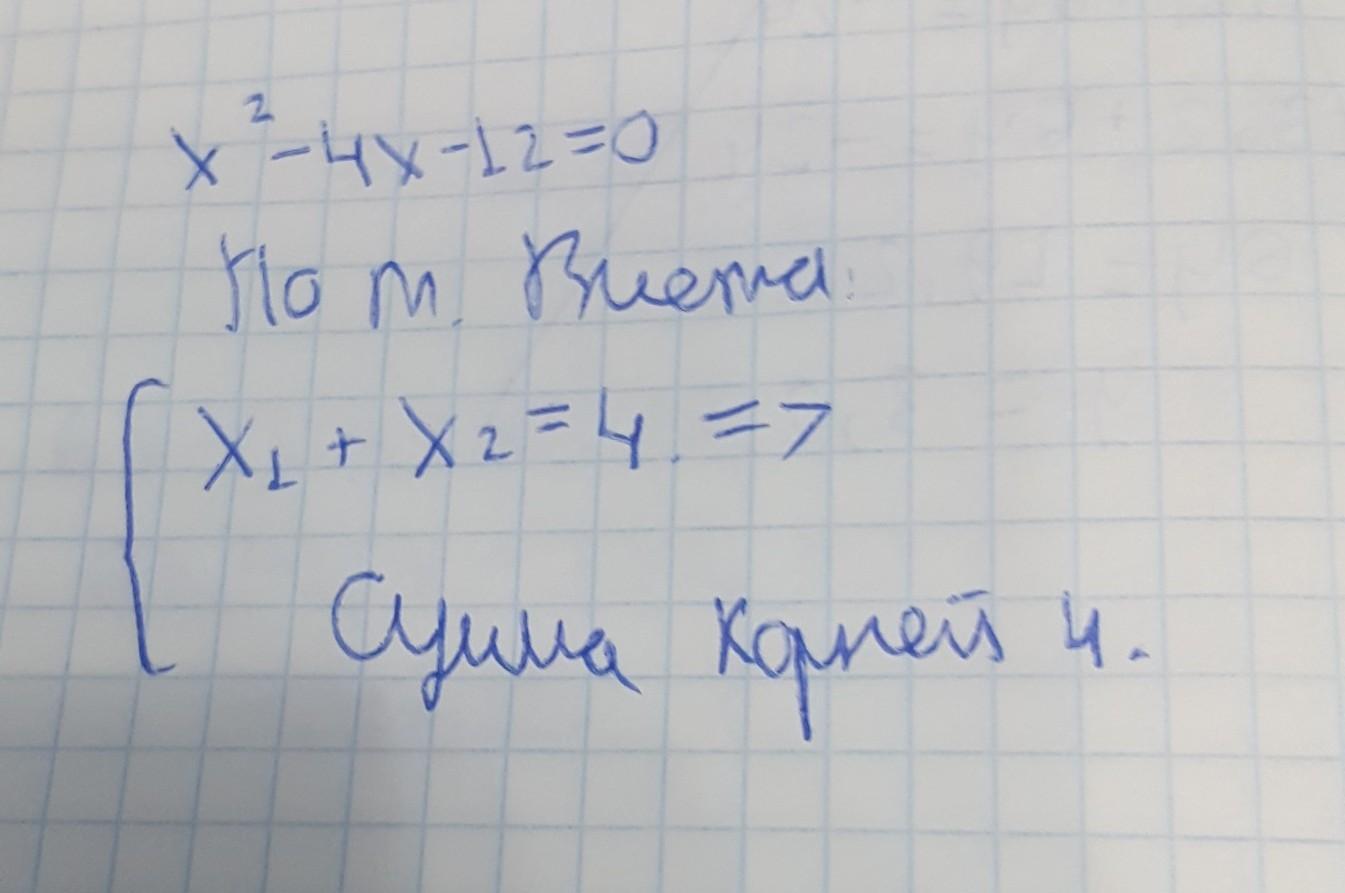 x²-4x-12=0
По т. Виета:
x₁ + x₂ = 4. =>
Сумма корней 4.